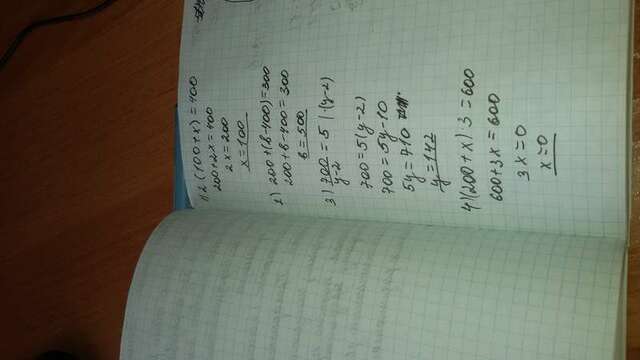 1) 2(100+x)=400
200+2x=400
2x=200
x=100
2) 200+(в-400)=300
200+в-400=300
в=500
3) 700/y-2 = 5 | ·(y-2)
700=5(y-2)
700=5y-10
5y=710
y=142
4) (200+x) 3 =600
600+3x=600
3x=0
x=0